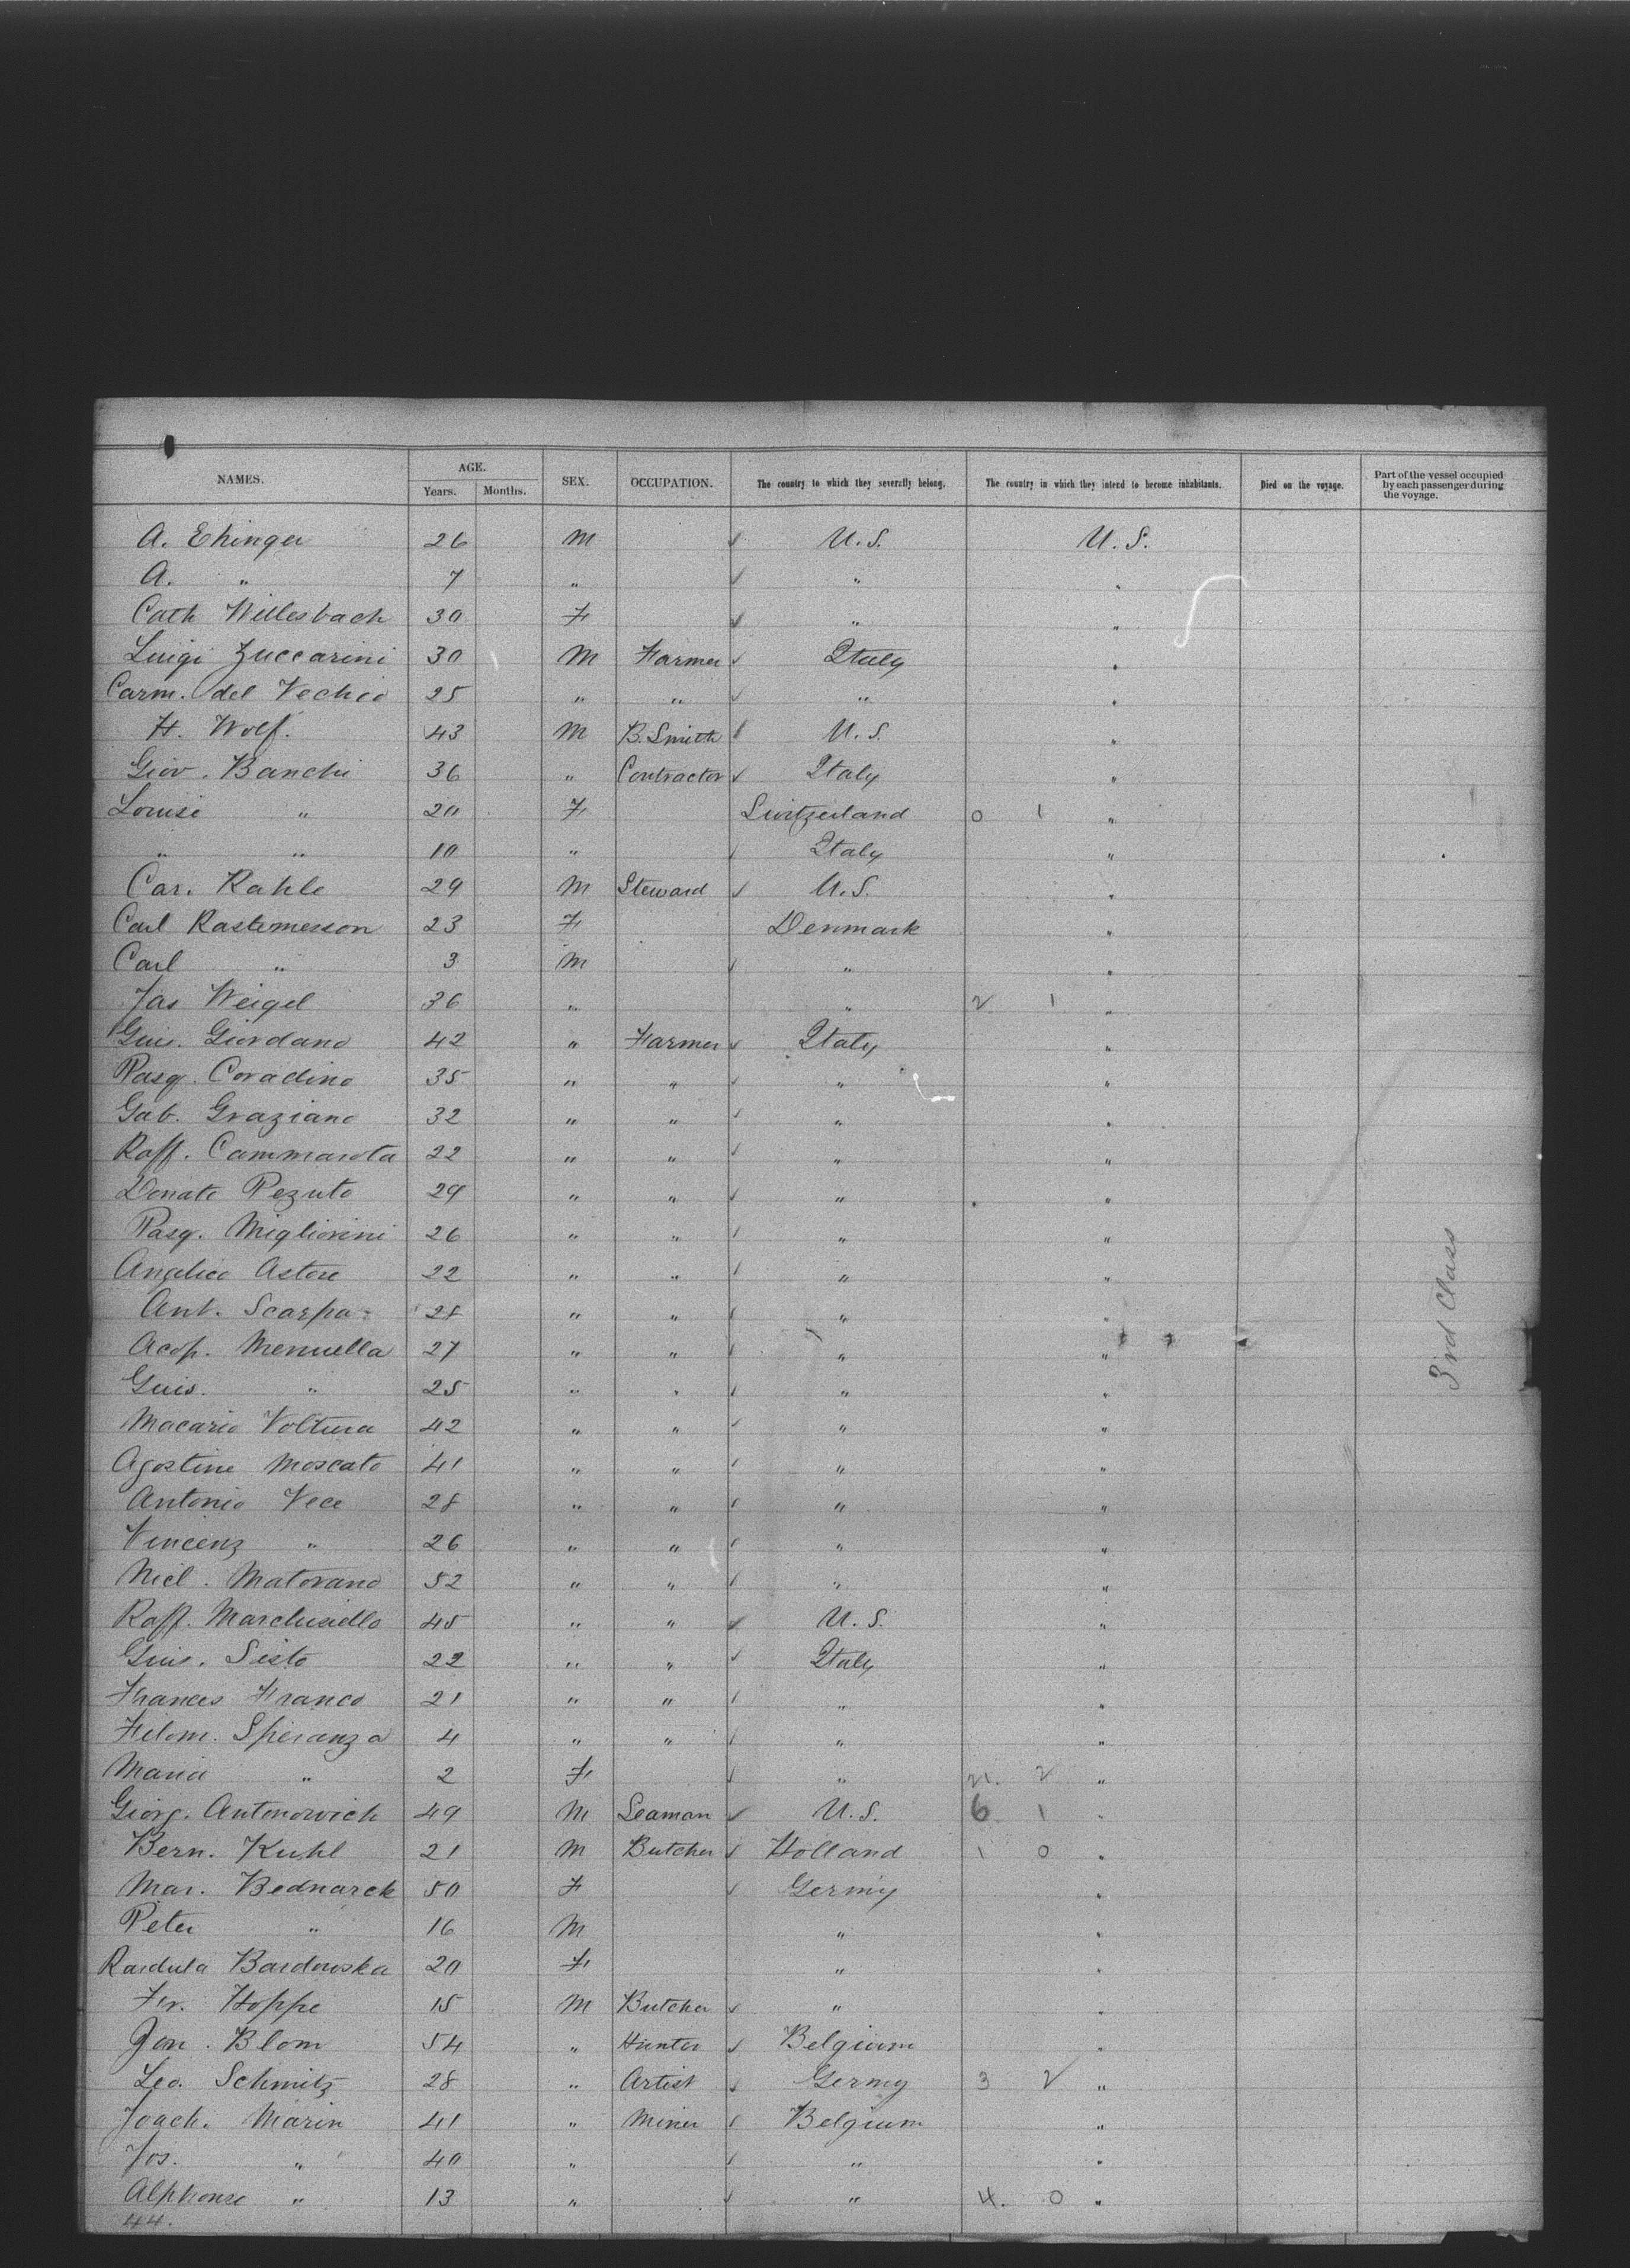 NAMES. AGE. Years. Months. SEX. OCCUPATION. The country to which they severally belong. The country in which they intend to become inhabitants. Died on the voyage. Part of the vessel occupied by each passenger during the voyage.
A. Ehinger 26 M U.S. U.S.
A. " 7 " " "
Cath Willesbach 30 F " "
Luigi Zuccarini 30 M Farmer Italy "
Carm. del Vechio 25 " " " "
H. Wolf. 43 M B. Smith U.S. "
Giov. Banchi 36 " Contractor Italy "
Louise " 20 F Switzerland 0 1 "
" " 10 " Italy "
Car. Kahle 29 M Steward U.S. "
Carl Rastemesson 23 F Denmark "
Carl " 3 M " "
Jas Weigel 36 " " 2 1 "
Guis. Giordano 42 " Farmer Italy "
Pasq. Coradino 35 " " " "
Gab. Graziano 32 " " " "
Raff. Cammarota 22 " " " "
Donato Pezuto 29 " " " "
Pasq. Migliorini 26 " " " "
Angelico Astore 22 " " " "
Ant. Scarpa 28 " " " "
Acop. Menuella 27 " " " "
Guis. " 25 " " " "
Macario Voltura 42 " " " "
Agostine Moscato 41 " " " "
Antonio Vece 28 " " " "
Vincenz " 26 " " " "
Nicl. Matorano 52 " " " "
Raff. Marchisiello 45 " " U.S. "
Guis. Sisto 22 " " Italy "
Frances Franco 21 " " " "
Filom. Speranza 4 " " " "
Maria " 2 F " 21. 2 "
Giorg. Antonowich 49 M Seaman U.S. 6 1 "
Bern. Kuhl 21 M Butcher Holland 1 0 "
Mar. Bednarek 50 F Germy "
Peter " 16 M " "
Radula Bardowska 20 F " "
Fr. Hoppe 15 M Butcher " "
Jan. Blom 54 " Hunter Belgium "
Leo. Schmitz 28 " Artist Germy 3 2 "
Joach. Marin 41 " Miner Belgium "
Jos. " 40 " " "
Alphonse " 13 " " 4. 0 "
44.
3rd Class